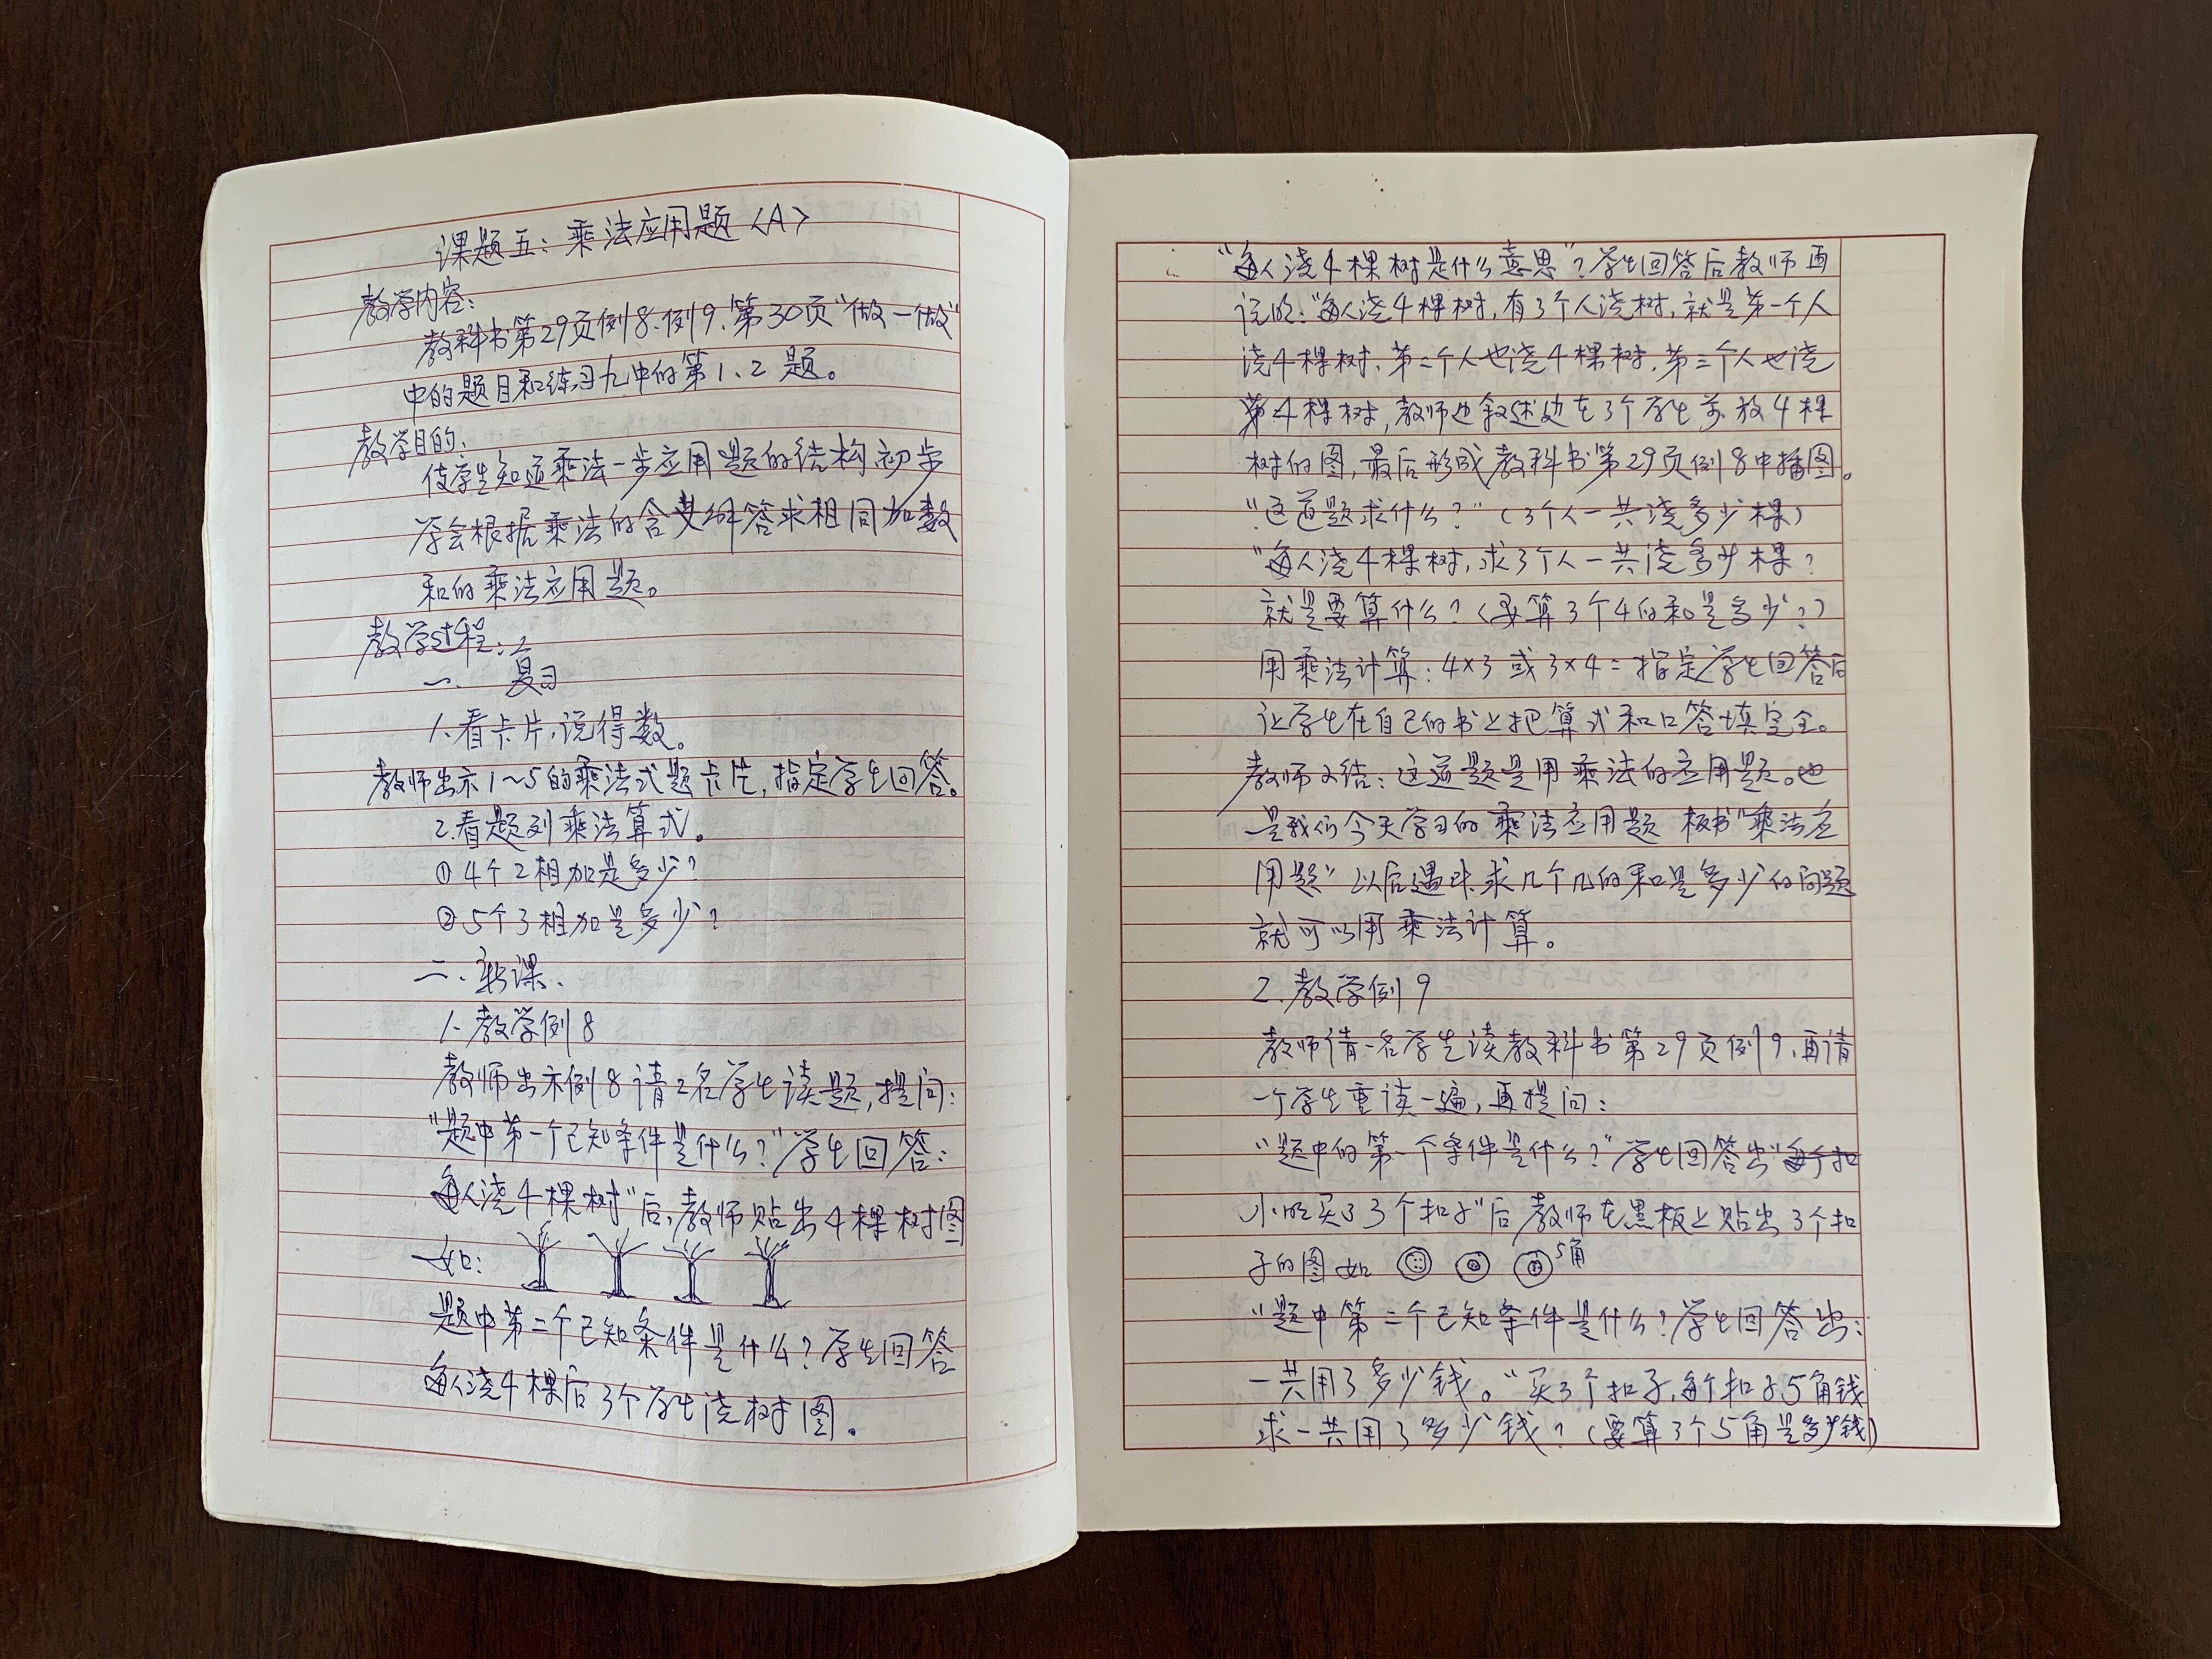 课题五：乘法应用题〈A〉
教学内容：
教科书第29页例8、例9、第30页“做一做”
中的题目和练习九中的第1、2题。
教学目的：
使学生知道乘法一步应用题的结构初步
学会根据乘法的含义解答求相同加数
和的乘法应用题。
教学过程：
一、复习
1、看卡片，说得数。
教师出示1～5的乘法式题卡片，指定学生回答。
2.看题列乘法算式。
①4个2相加是多少？
②5个3相加是多少？
二、新课、
1、教学例8
教师出示例8请2名学生读题，提问：
“题中第一个已知条件是什么？”学生回答：
每人浇4棵树”后，教师贴出4棵树图
如：
题中第二个已知条件是什么？学生回答
每人浇4棵后3个学生浇树图。
“每人浇4棵树是什么意思”？学生回答后教师再
说明：“每人浇4棵树，有3个人浇树，就是第一个人
浇4棵树、第二个人也浇4棵树、第三个人也浇
4棵树，教师边叙述边在3个学生前放4棵
树的图，最后形成教科书第29页例8中插图。
“这道题求什么？”（3个人一共浇多少棵）
“每人浇4棵树，求3个人一共浇多少棵？
就是要算什么？（要算3个4的和是多少？）
用乘法计算：4×3或3×4=指定学生回答后
让学生在自己的书上把算式和口答填完全。
教师小结：这道题是用乘法的应用题。也
是我们今天学习的乘法应用题 板书“乘法应
用题”以后遇求几个几的和是多少的问题
就可以用乘法计算。
2.教学例9
教师请一名学生读教科书第29页例9，再请
一个学生重读一遍，再提问：
“题中的第一个条件是什么？”学生回答出“每个扣
小明买了3个扣子”后教师在黑板上贴出3个扣
子的图如 5角
“题中第二个已知条件是什么？学生回答出：
一共用了多少钱。“买3个扣子，每个扣子5角钱
求一共用了多少钱？（要算3个5角是多少钱）